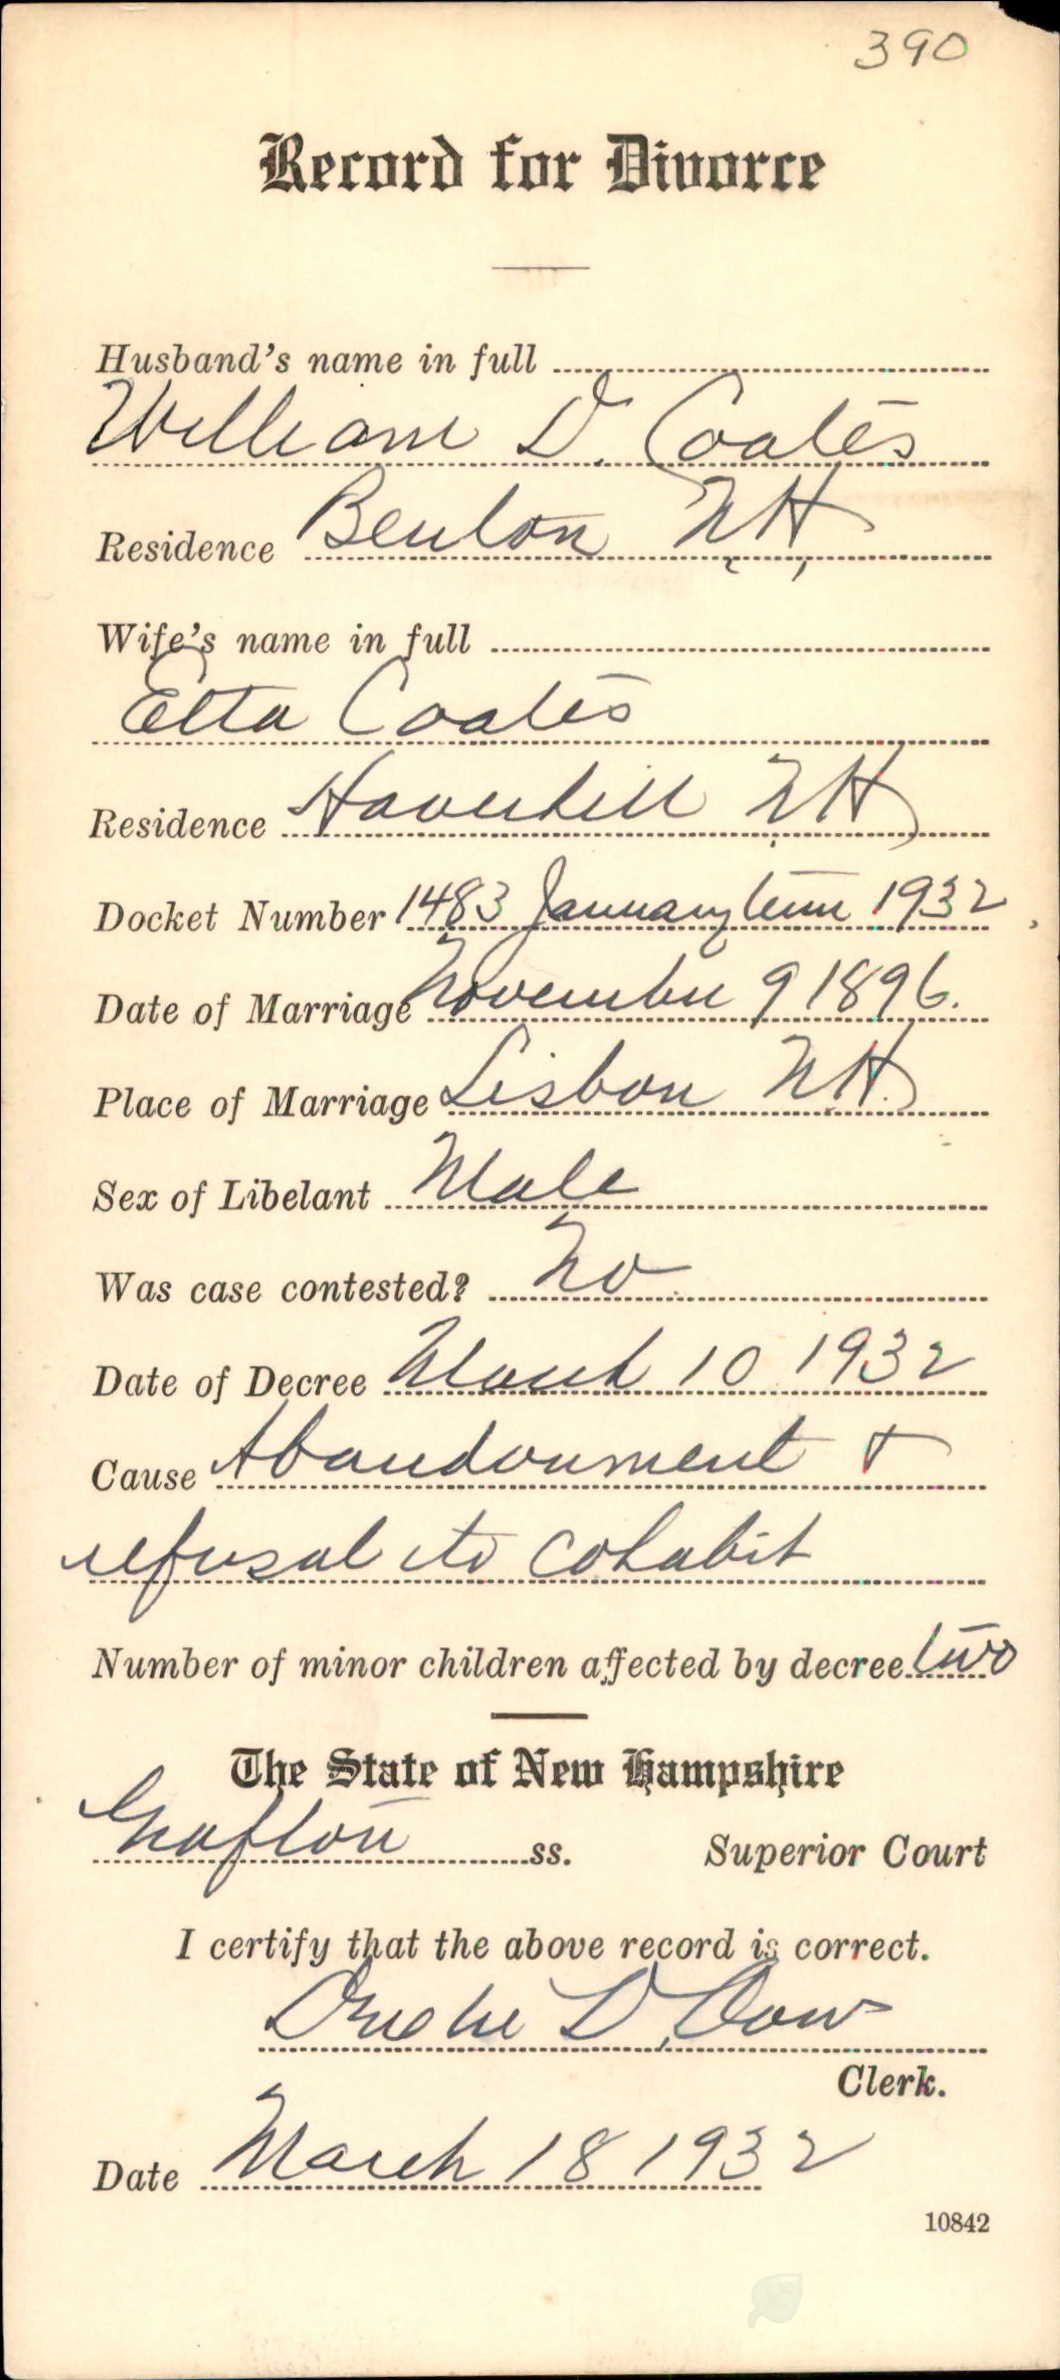 390
Record for Divorce
Husband's name in full
William D. Coates
Residence Benton N.H.
Wife's name in full
Etta Coates
Residence Haverhill N.H.
Docket Number 1483 January term 1932
Date of Marriage November 9 1896.
Place of Marriage Lisbon N.H.
Sex of Libelant Male
Was case contested? No
Date of Decree March 10 1932
Cause Abandonment &
refusal to cohabit
Number of minor children affected by decree two
The State of New Hampshire
Grafton ss. Superior Court
I certify that the above record is correct.
D. Dow
Clerk.
Date March 18 1932
10842